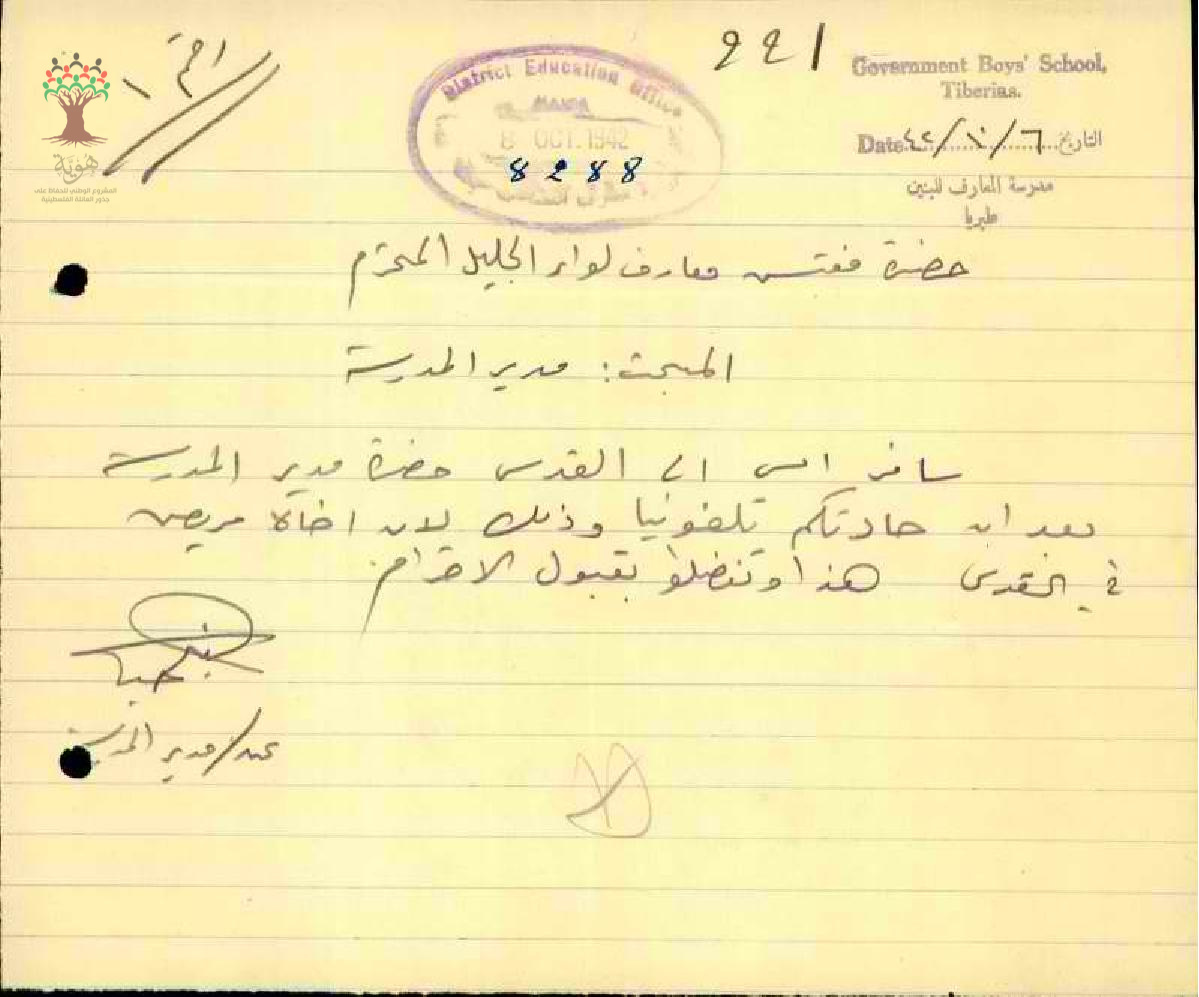 221
Government Boys' School,
Tiberias.
Date ٤٢/١٠/٦ التاريخ
مدرسة المعارف للبنين
طبريا
District Education Office
HAIFA
8 OCT. 1942
8288
هوية
المشروع الوطني للحفاظ على
جذور العائلة الفلسطينية
حضرة مفتش معارف لواء الجليل المحترم
المبحث: مدير المدرسة
سافر امس الى القدس حضرة مدير المدرسة
بعد ان حادثكم تلفونيا وذلك لان اخاه مريض
في القدس هذا وتفضلوا بقبول الاحترام.
عن/مدير المدرسة